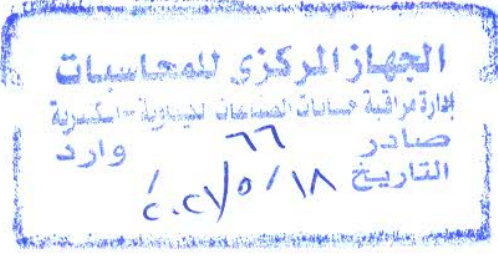 الجهاز المركزي للمحاسبات
إدارة مراقبة حسابات الصناعات الكيماوية - اسكندرية
صادر ٦٦ وارد
التاريخ ١٨ / ٥ / ٢٠٢١